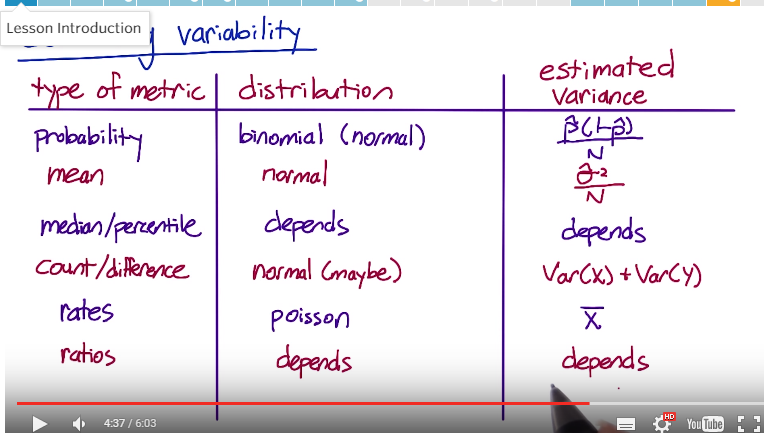 Lesson Introduction
variability
type of metric distribution estimated variance
probability binomial (normal) p̂(1-p̂)/N
mean normal σ̂²/N
median/percentile depends depends
count/difference normal (maybe) Var(X) + Var(Y)
rates poisson X̅
ratios depends depends
4:37 / 6:03 HD YouTube